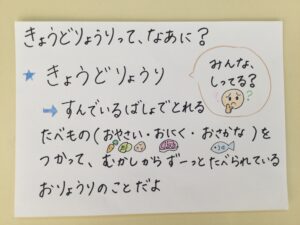 きょうどりょうりって、なあに？
★ きょうどりょうり
みんな、
しってる？
→ すんでいるばしょでとれる
たべもの(おやさい・おにく・おさかな)を
つかって、むかしからずーっとたべられている
おりょうりのことだよ